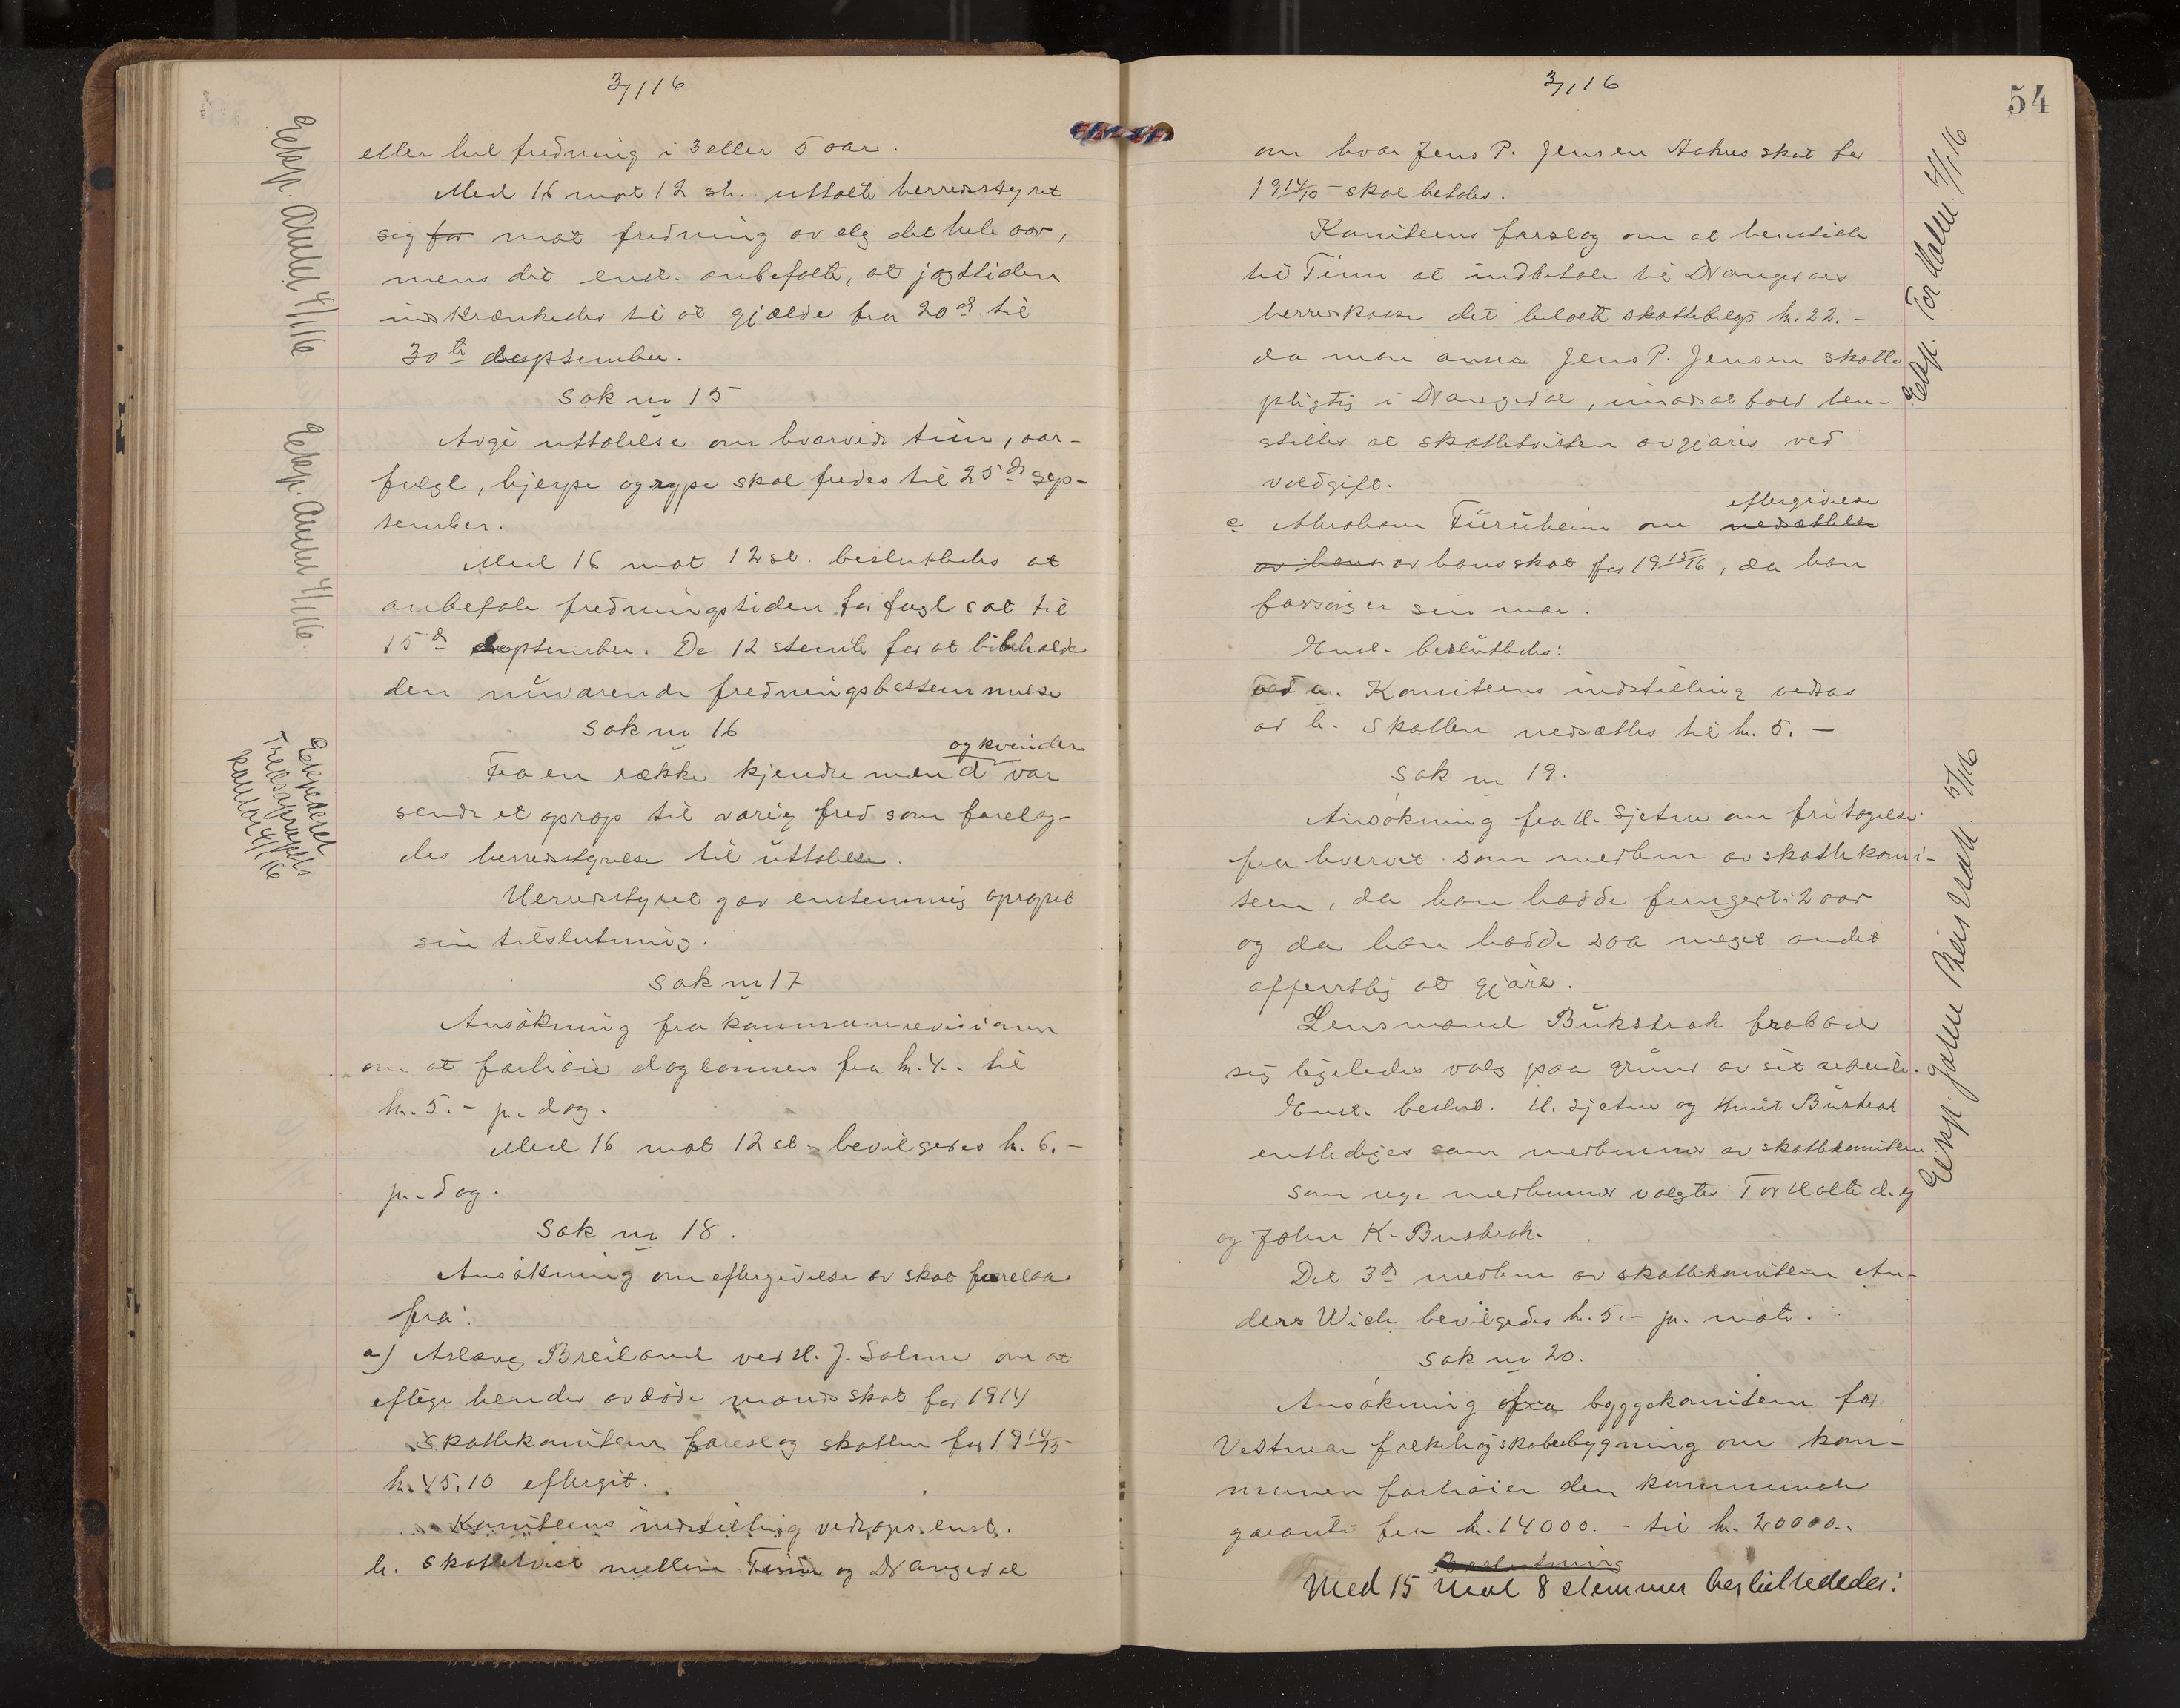 3/1 16
eller hel fredning i 3 eller 5 aar.
Med 16 mot 12 st. uttalte herredsstyret
sig for mot fredning av elg det hele aar,
mens det enst. anbefalte, at jagttiden
indskrænkedes til at gjælde fra 20de til
30te september.
Sak nr 15
Avgi uttalelse om hvorvidt tiur, aar-
fugl, hjerpe og rype skal fredes til 25de sep-
tember.
Med 16 mot 12 st. besluttedes at
anbefale fredningstiden for fugl sat til
15de september. De 12 stemte for at bibeholde
den nuværende fredningsbestemmelse
Sak nr 16
og kvinder
Fra en række kjendte mænd var
sendt et oprop til varig fred som forelag-
des herredsstyrelse til uttalelse.
Herredsstyret gav enstemmig opropet
sin tilslutning.
Sak nr 17
Ansökning fra kommunerevisionen
om at forhöie daglönnen fra kr. 4.- til
kr. 5.- pr. dag.
Med 16 mot 12 st. bevilgedes kr. 6.-
pr. dag.
Sak nr 18.
Ansökning om eftergivelse av skat forelaa
fra:
a) Aslaug Breiland ved H. J. Solum om at
eftergi hendes avdöde mands skat for 1914
Skattekomiteen foreslog skatten for 1914/15
kr. 45.10 eftergit.
Komiteens indstilling vedtoges enst.
b. Skattetvist mellem Tinn og Drangedal
Eksp. Amtet 4/1 16
Eksp. Amtet 4/1 16.
Ekspederet
Fredsopropets
kontor 4/1 16
3/1 16
54
om hvor Jens P. Jensen Aakres skat for
1914/15 skal betales.
Komiteens forslag om at henstille
til Tinn at indbetale til Drangedals
herredskasse det beloete skattebelöp kr. 22.-
da man anser Jens P. Jensen skatte
pligtig i Drangedal, imodsat fald hen-
stilles at skattetvisten avgjöres ved
voldgift.
eftergivelse
c Abraham Furuheim om nedsættelse
av hans av hans skat for 1915/16, da han
forsörger sin mor.
Enst. besluttedes:
ved a. Komiteens indstilling vedtas
ad b. Skatten nedsættes til kr. 5.-
Sak nr 19.
Ansökning fra H. Sjetne om fritagelse
fra hvervet som medlem av skattekomi-
teen, da han hadde fungert i 2 aar
og da han hadde saa meget andet
offentlig at gjöre.
Lensmand Bukstrak frabad
sig ligeledes valg paa grund av sit arbeide.
Enst. beslut. H. Sjetne og Knut Bustrak
entlediges som medlemmer av skattekomiteen
Som nye medlemmer valgtes Tor Holte d. y
og John K. Bustrak.
Det 3de medlem av skattekomiteen An-
ders Wich bevilgedes kr. 5.- pr. möte.
Sak nr 20.
Ansökning fra byggekomiteen for
Vestmar folkehöiskolebygning om kom-
munen forhöier den kommunale
garanti fra kr. 14000.- til kr. 20000.-
Beslutning
Med 15 mot 8 stemmer besluttededes:
Eksp. Tor Holte 4/1 16
Eksp. John 5/1 16